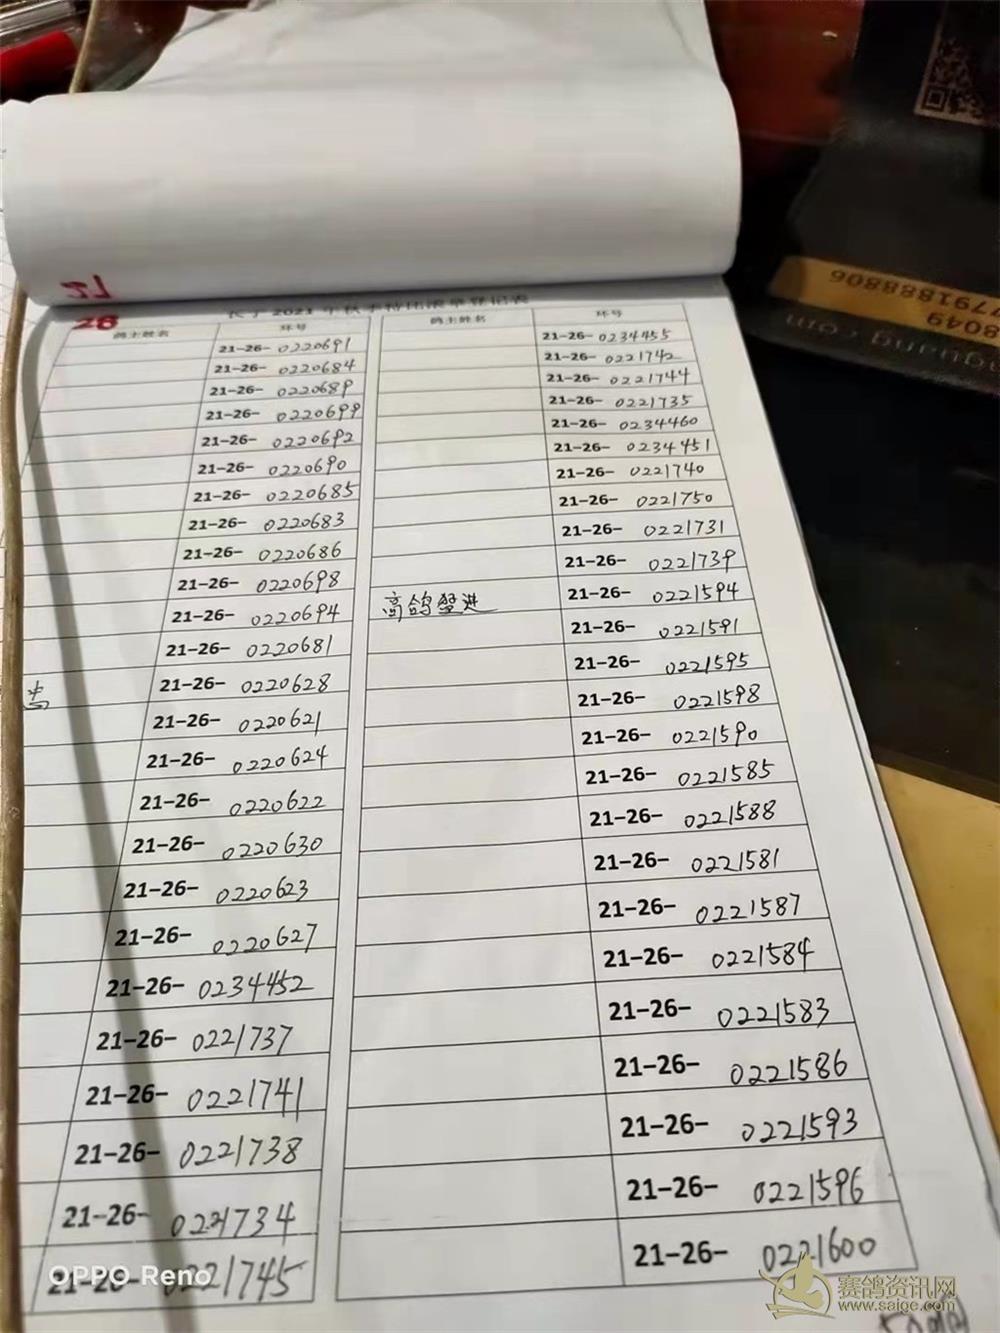 21
28
长子2021年秋季特比清单登记表
鸽主姓名 环号 鸽主姓名 环号
21-26- 0220691 21-26- 0234455
21-26- 0220684 21-26- 0221742
21-26- 0220689 21-26- 0221744
21-26- 0220699 21-26- 0221735
21-26- 0220692 21-26- 0234460
21-26- 0220690 21-26- 0234451
21-26- 0220685 21-26- 0221740
21-26- 0220683 21-26- 0221750
21-26- 0220686 21-26- 0221731
21-26- 0220698 21-26- 0221739
21-26- 0220694 高鸽 进 21-26- 0221594
21-26- 0220681 21-26- 0221591
21-26- 0220628 21-26- 0221595
21-26- 0220621 21-26- 0221598
21-26- 0220624 21-26- 0221590
21-26- 0220622 21-26- 0221585
21-26- 0220630 21-26- 0221588
21-26- 0220623 21-26- 0221581
21-26- 0220627 21-26- 0221587
21-26- 0234452 21-26- 0221584
21-26- 0221737 21-26- 0221583
21-26- 0221741 21-26- 0221586
21-26- 0221738 21-26- 0221593
21-26- 0221734 21-26- 0221596
21-26- 0221745 21-26- 0221600
OPPO Reno
赛鸽资讯网
www.saige.com
7791888806
8049